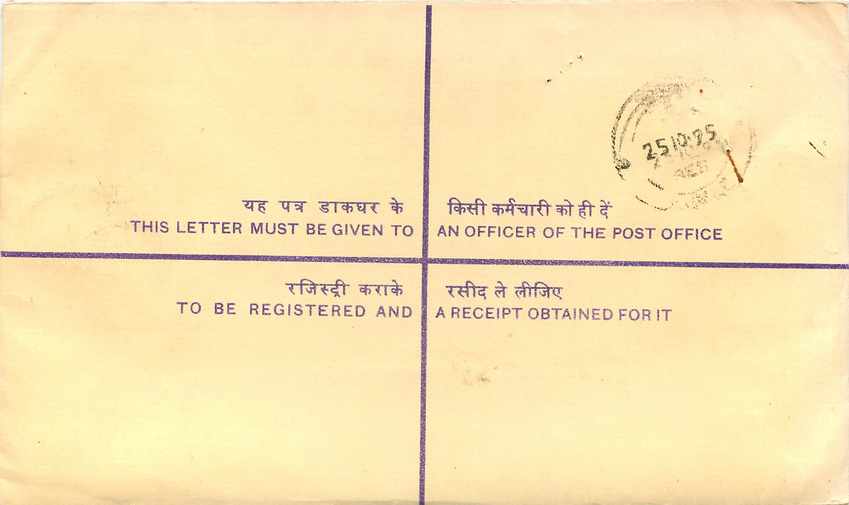 यह पत्र डाकघर के किसी कर्मचारी को ही दें
THIS LETTER MUST BE GIVEN TO AN OFFICER OF THE POST OFFICE
रजिस्ट्री कराके रसीद ले लीजिए
TO BE REGISTERED AND A RECEIPT OBTAINED FOR IT
25 10.95